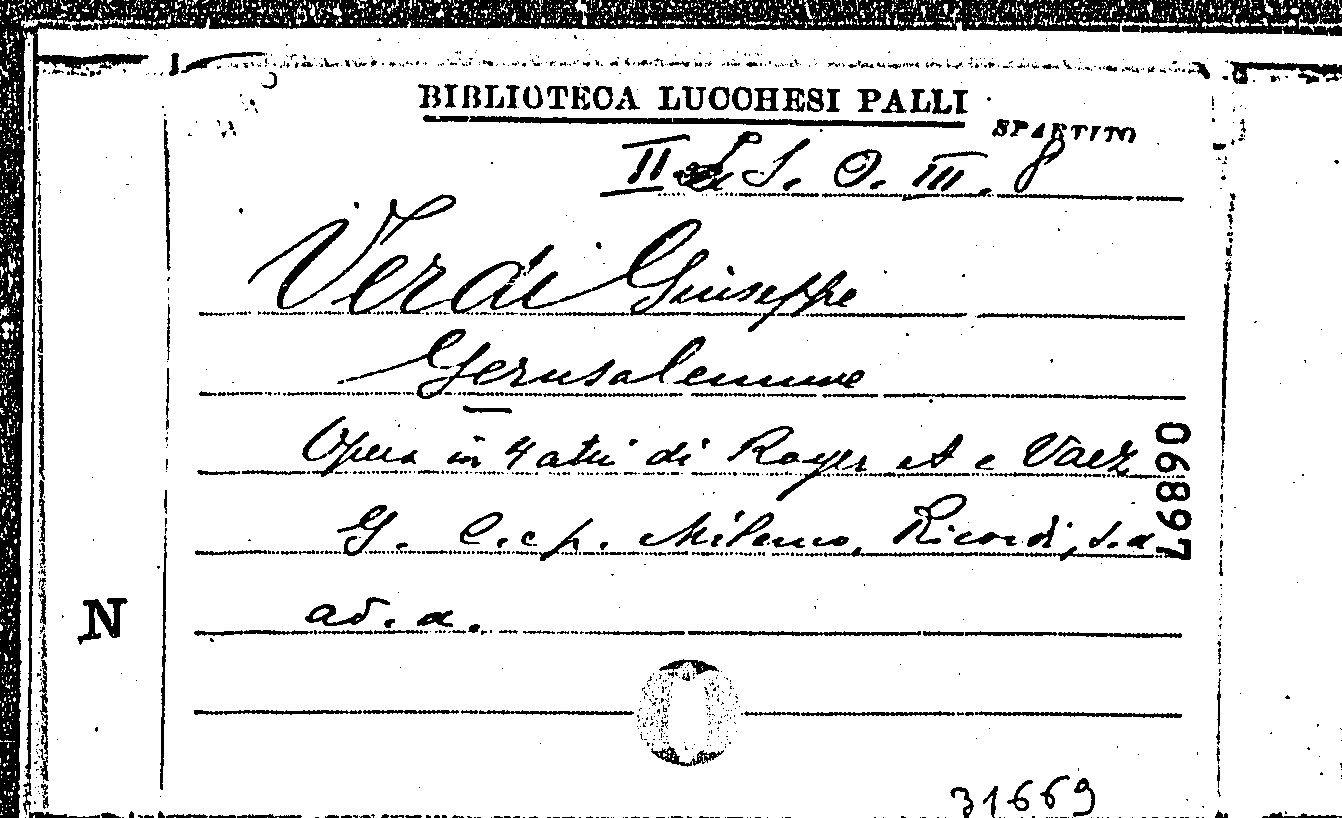 BIBLIOTECA LUCCHESI PALLI
SPARTITO
II S. O. III. 8
Verdi Giuseppe
Gerusalemme
Opera in 4 atti di Royer A e Vaez
G. C. e p. Milano, Ricordi, s.a
ad. a.
06897
N
31669